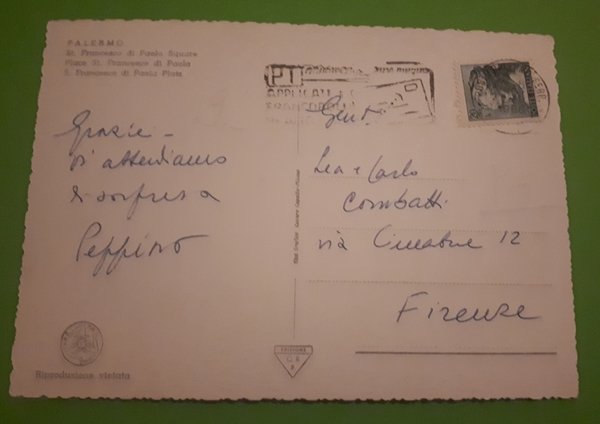 PALERMO
St. Francesco di Paola Square
Place St. Francesco di Paola
S. Francesco di Paola Platz
PT
APPLICATE
FRANCOBOLLI
Grazie -
Vi attendiamo
di sorpresa
Peppino
Gent.
Lea e Carlo
Combatti
via Cimabue 12
Firenze
EDIZIONE
Riproduzione vietata